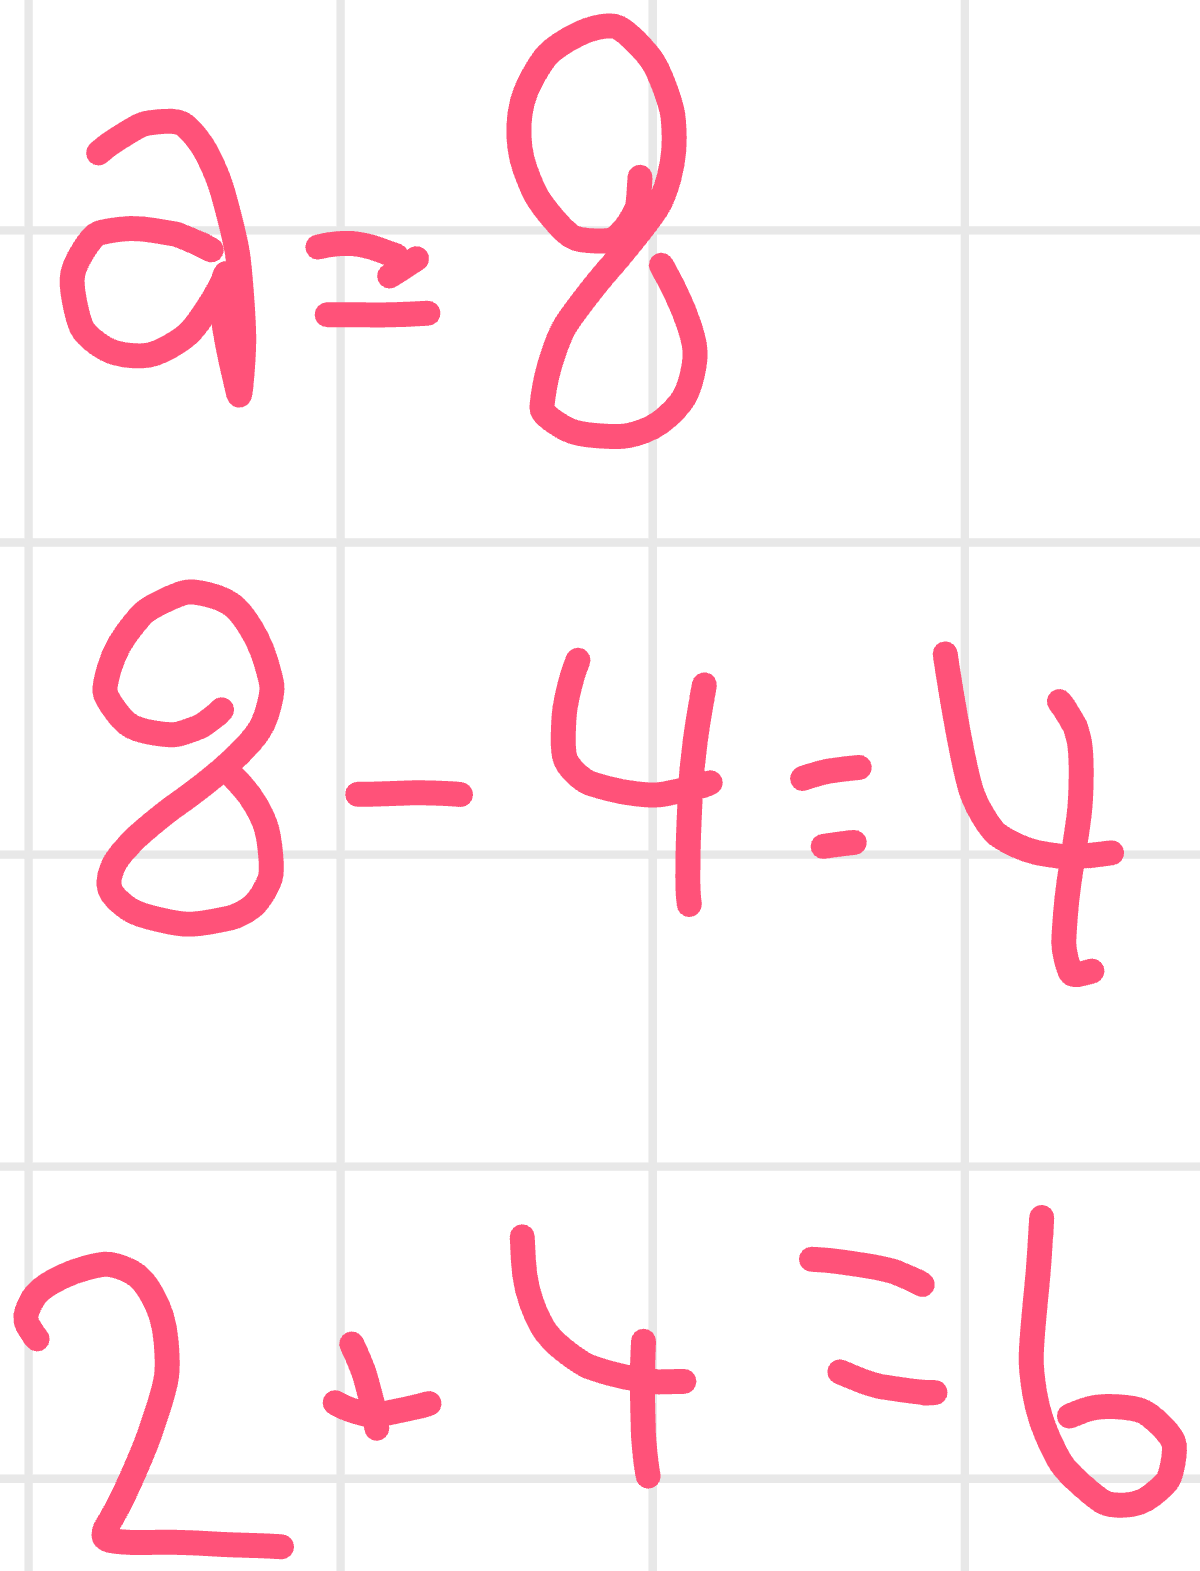 a=8
8-4=4
2+4=6